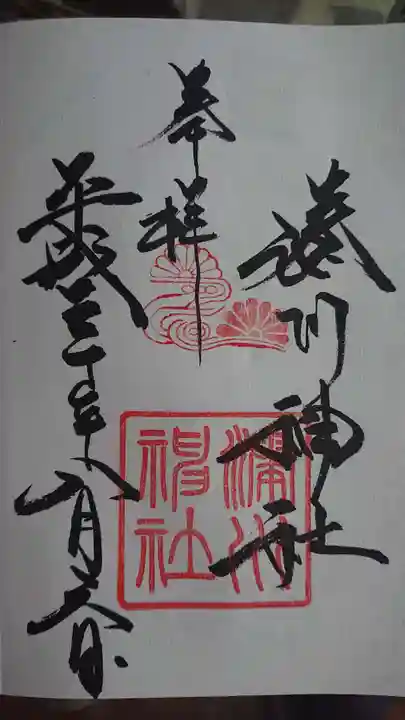 湊川神社
奉拝
平成三十年八月六日
湊川
神社